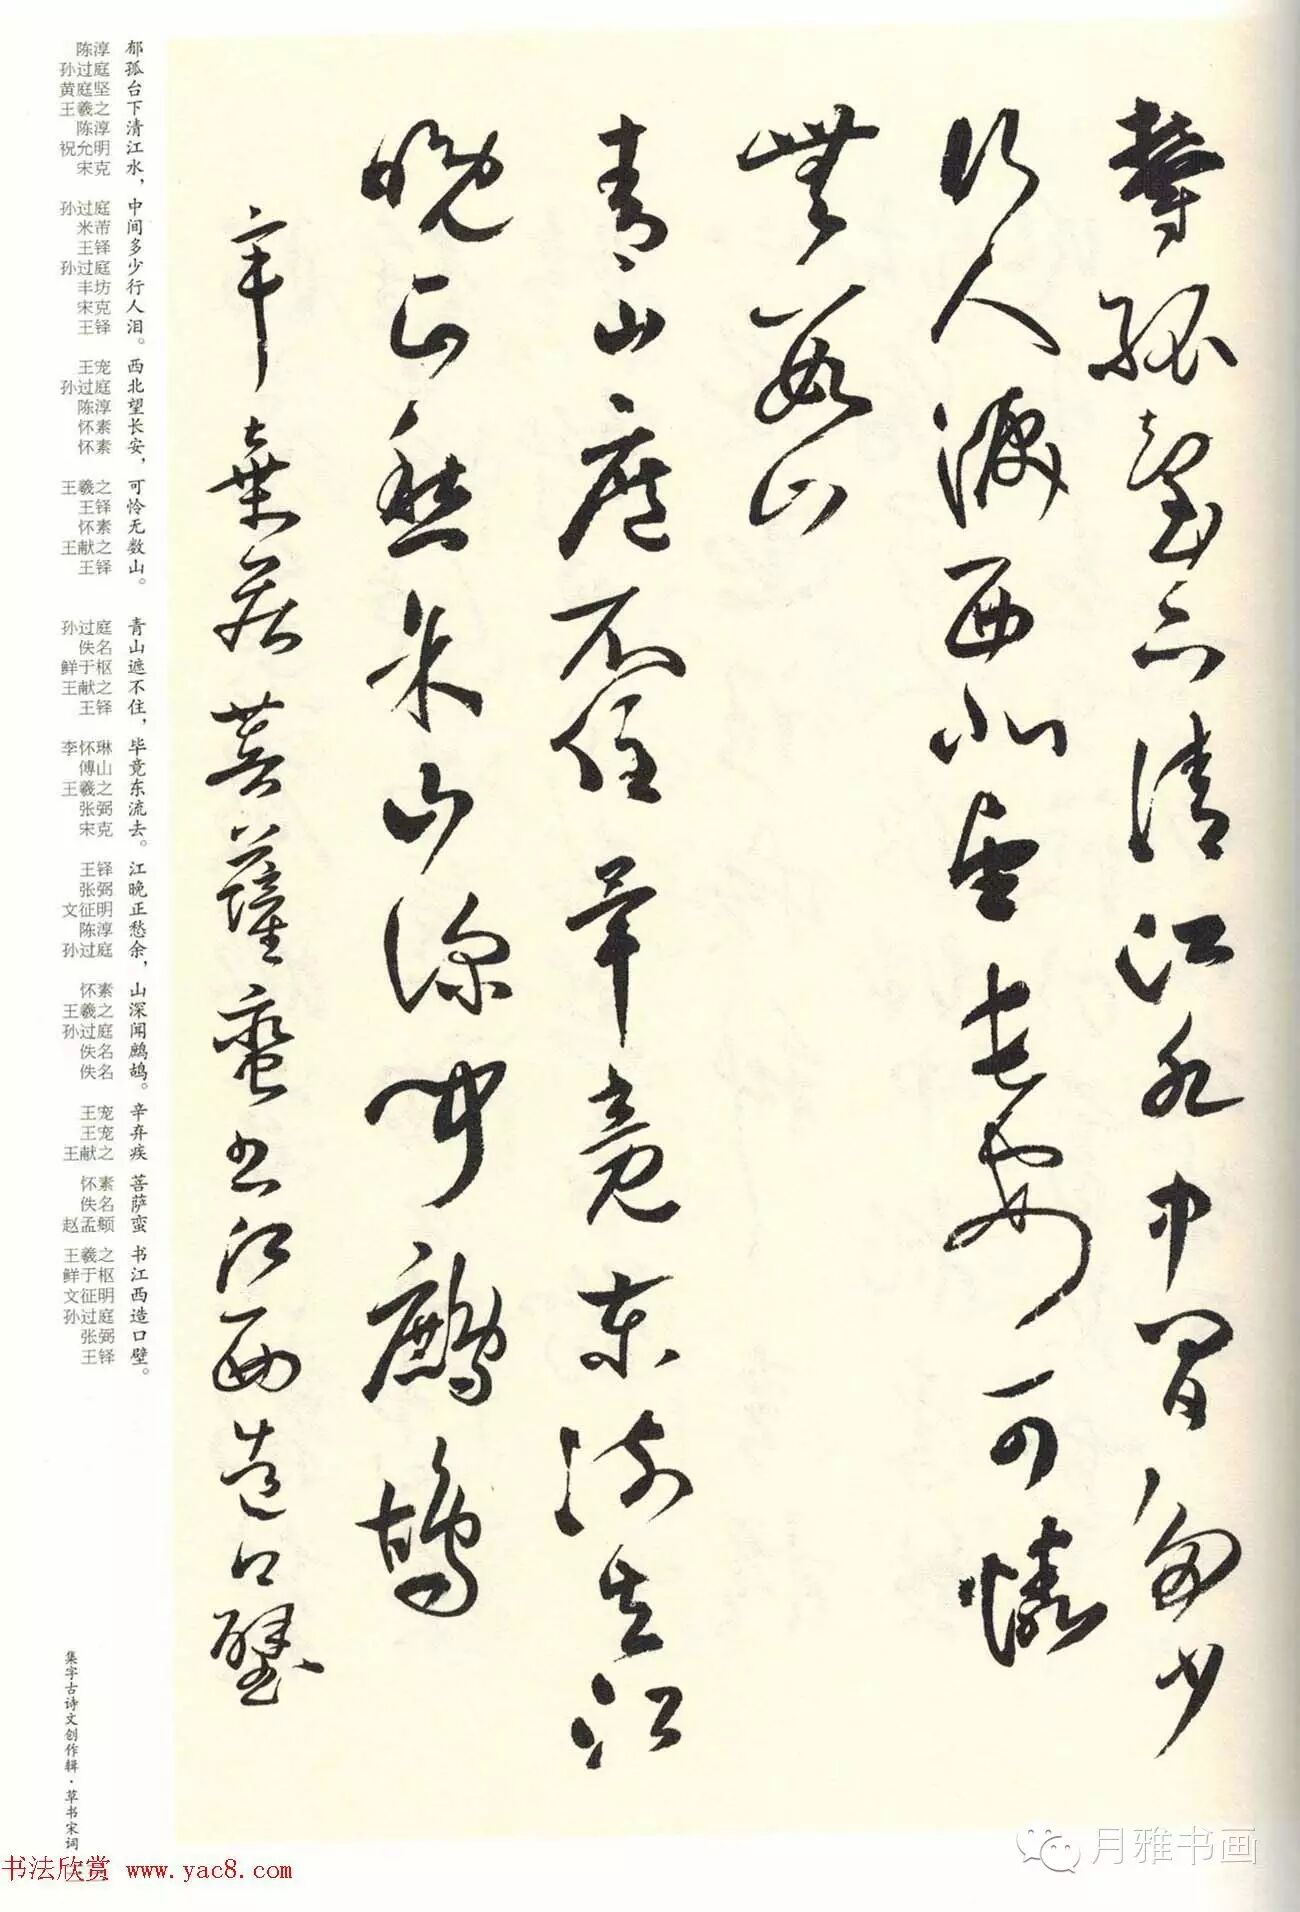 鬱孤臺下清江水中間多少
行人淚西北望長安可憐
無數山
青山遮不住畢竟東流去江
晚正愁余山深聞鷓鴣
辛棄疾菩薩蠻書江西造口壁
郁孤台下清江水，中间多少行人泪。西北望长安，可怜无数山。
青山遮不住，毕竟东流去。江晚正愁余，山深闻鹧鸪。辛弃疾 菩萨蛮 书江西造口壁。
陈淳 孙过庭 黄庭坚 王羲之 陈淳 祝允明 宋克 孙过庭 米芾 王铎 孙过庭 丰坊 宋克 王铎 王宠 孙过庭 陈淳 怀素 怀素 王羲之 王铎 怀素 王献之 王铎
孙过庭 佚名 鲜于枢 王献之 王铎 李怀琳 傅山 王羲之 张弼 宋克 王铎 张弼 文征明 陈淳 孙过庭 怀素 王羲之 孙过庭 佚名 佚名 王宠 王宠 王献之 怀素 佚名 赵孟頫 王羲之 鲜于枢 文征明 孙过庭 张弼 王铎
集字古诗文创作辑·草书宋词
书法欣赏 www.yac8.com
月雅书画